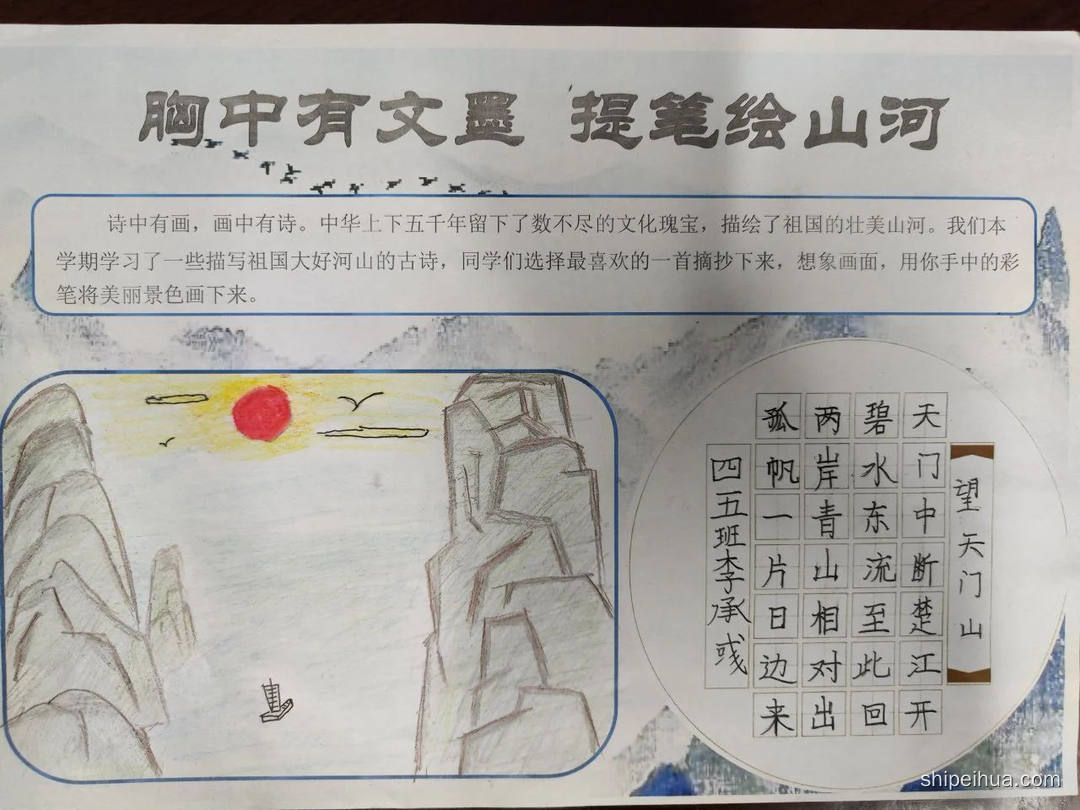 胸中有文墨 提笔绘山河
诗中有画，画中有诗。中华上下五千年留下了数不尽的文化瑰宝，描绘了祖国的壮美山河。我们本
学期学习了一些描写祖国大好河山的古诗，同学们选择最喜欢的一首摘抄下来，想象画面，用你手中的彩
笔将美丽景色画下来。
望天门山
天门中断楚江开
碧水东流至此回
两岸青山相对出
孤帆一片日边来
四五班李承彧
shipeihua.com